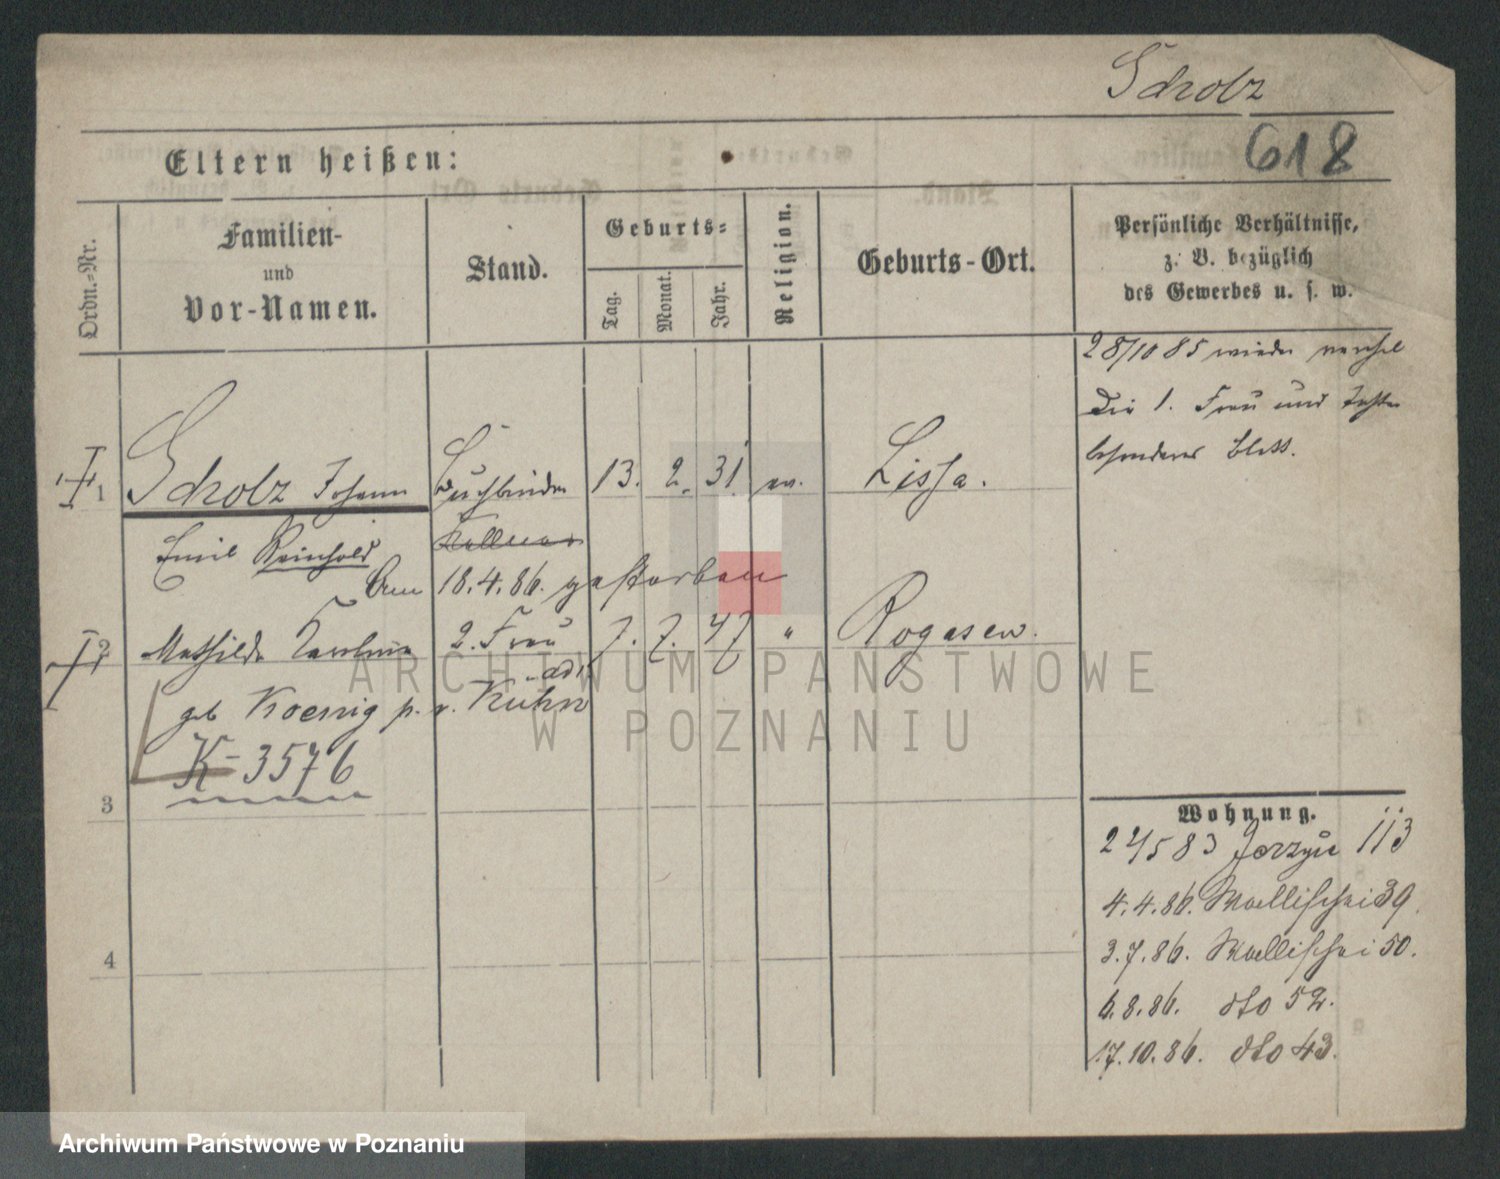 Scholz
618
Eltern heißen:
Ordn.-Nr.
Familien-
und
Vor-Namen.
Stand.
Geburts-
Tag.
Monat.
Jahr.
Religion.
Geburts-Ort.
Persönliche Verhältnisse,
z. B. bezüglich
des Gewerbes u. s. w.
28/10 85 wieder
Die 1. Frau und
besonderes Blatt.
1 Scholz Johann Buchbinder 13. 2. 31 ev. Lissa.
Emil Reinhold Kellner
Am 18.4.86. gestorben
2 Mathilde Karoline 2. Frau 7. 7. 47 " Rogasen.
geb Koenig p. v. Kuhn
K-3576
3
4
Wohnung.
24/5 83 Jerzyce 113
4.4.86. Wallischei 39.
3.7.86. Wallischei 50.
6.8.86. dto 52.
17.10.86. dto 43.
ARCHIWUM PAŃSTWOWE
W POZNANIU
Archiwum Państwowe w Poznaniu